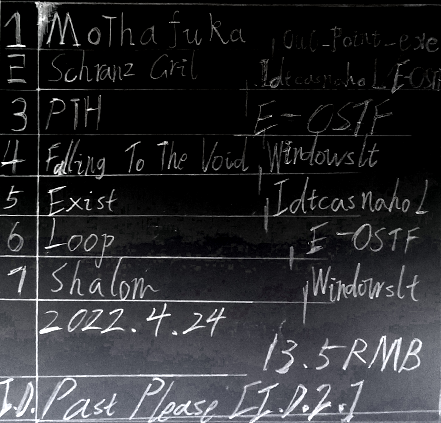 1 MoThafuka out-Point-exe
2 Schranz Gril Idtcasnaho L E-OSTF
3 PTH E-OSTF
4 Falling To The Void Windowslt
5 Exist Idtcasnaho L
6 Loop E-OSTF
7 Shalom Windowslt
2022.4.24
13.5RMB
I.D. Past Please [I.D.2.]